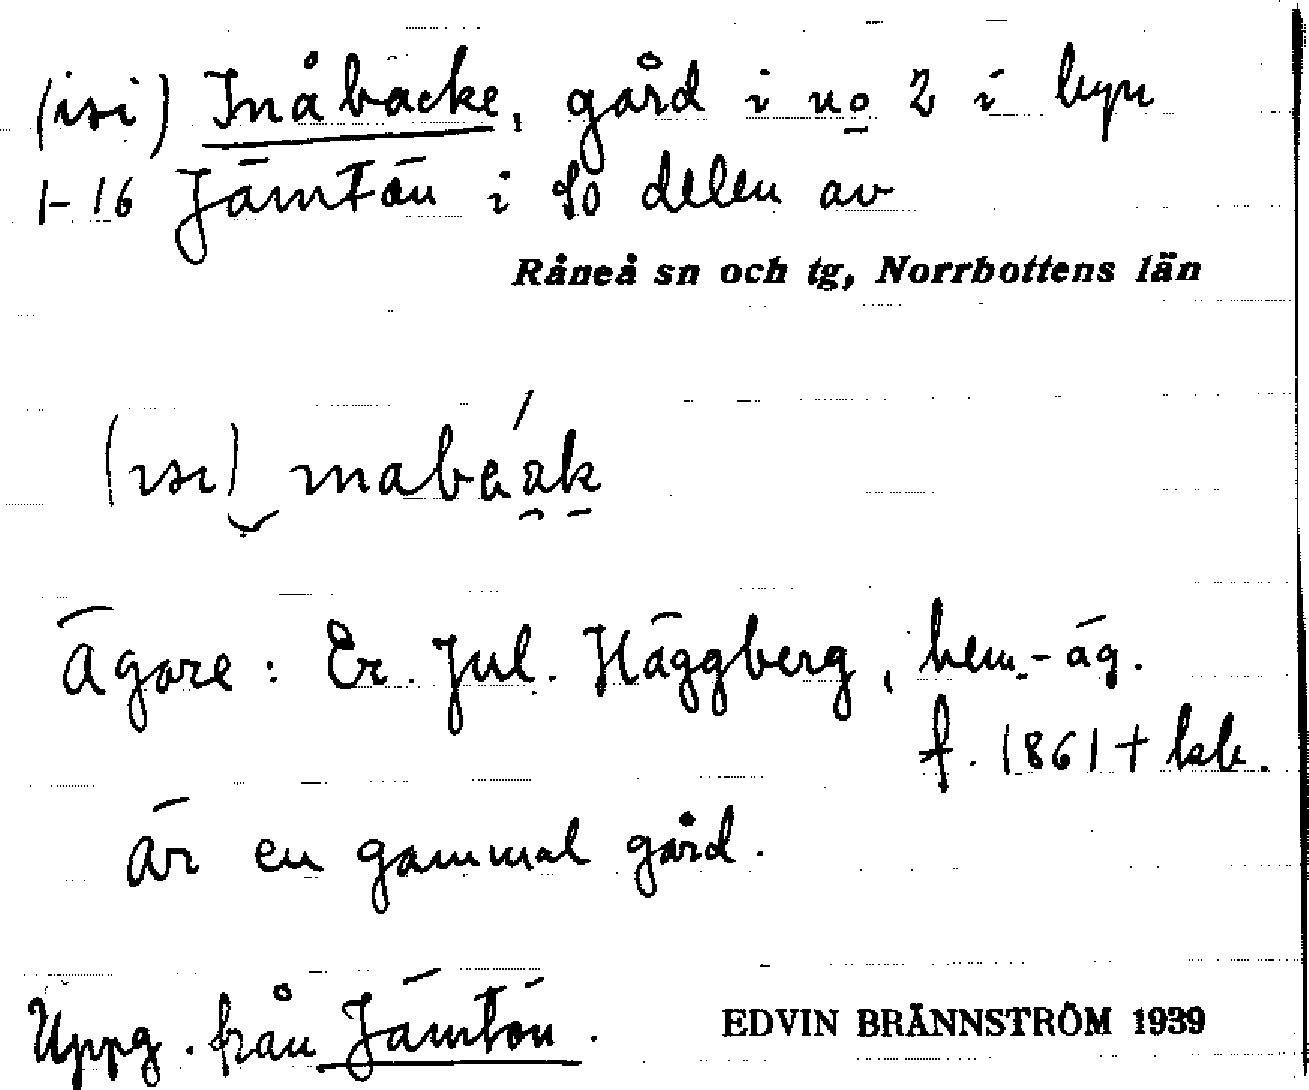 (isi) Inåbacke, gård i no 2 i byn
1-16 Jämtön i SO delen av
Råneå sn och tg, Norrbottens län
(ısı)
Ägare: Er. Jul. Häggberg, hem.-äg.
f. 1861 +
är en gammal gård.
Uppg. från Jämtön.
EDVIN BRÄNNSTRÖM 1939